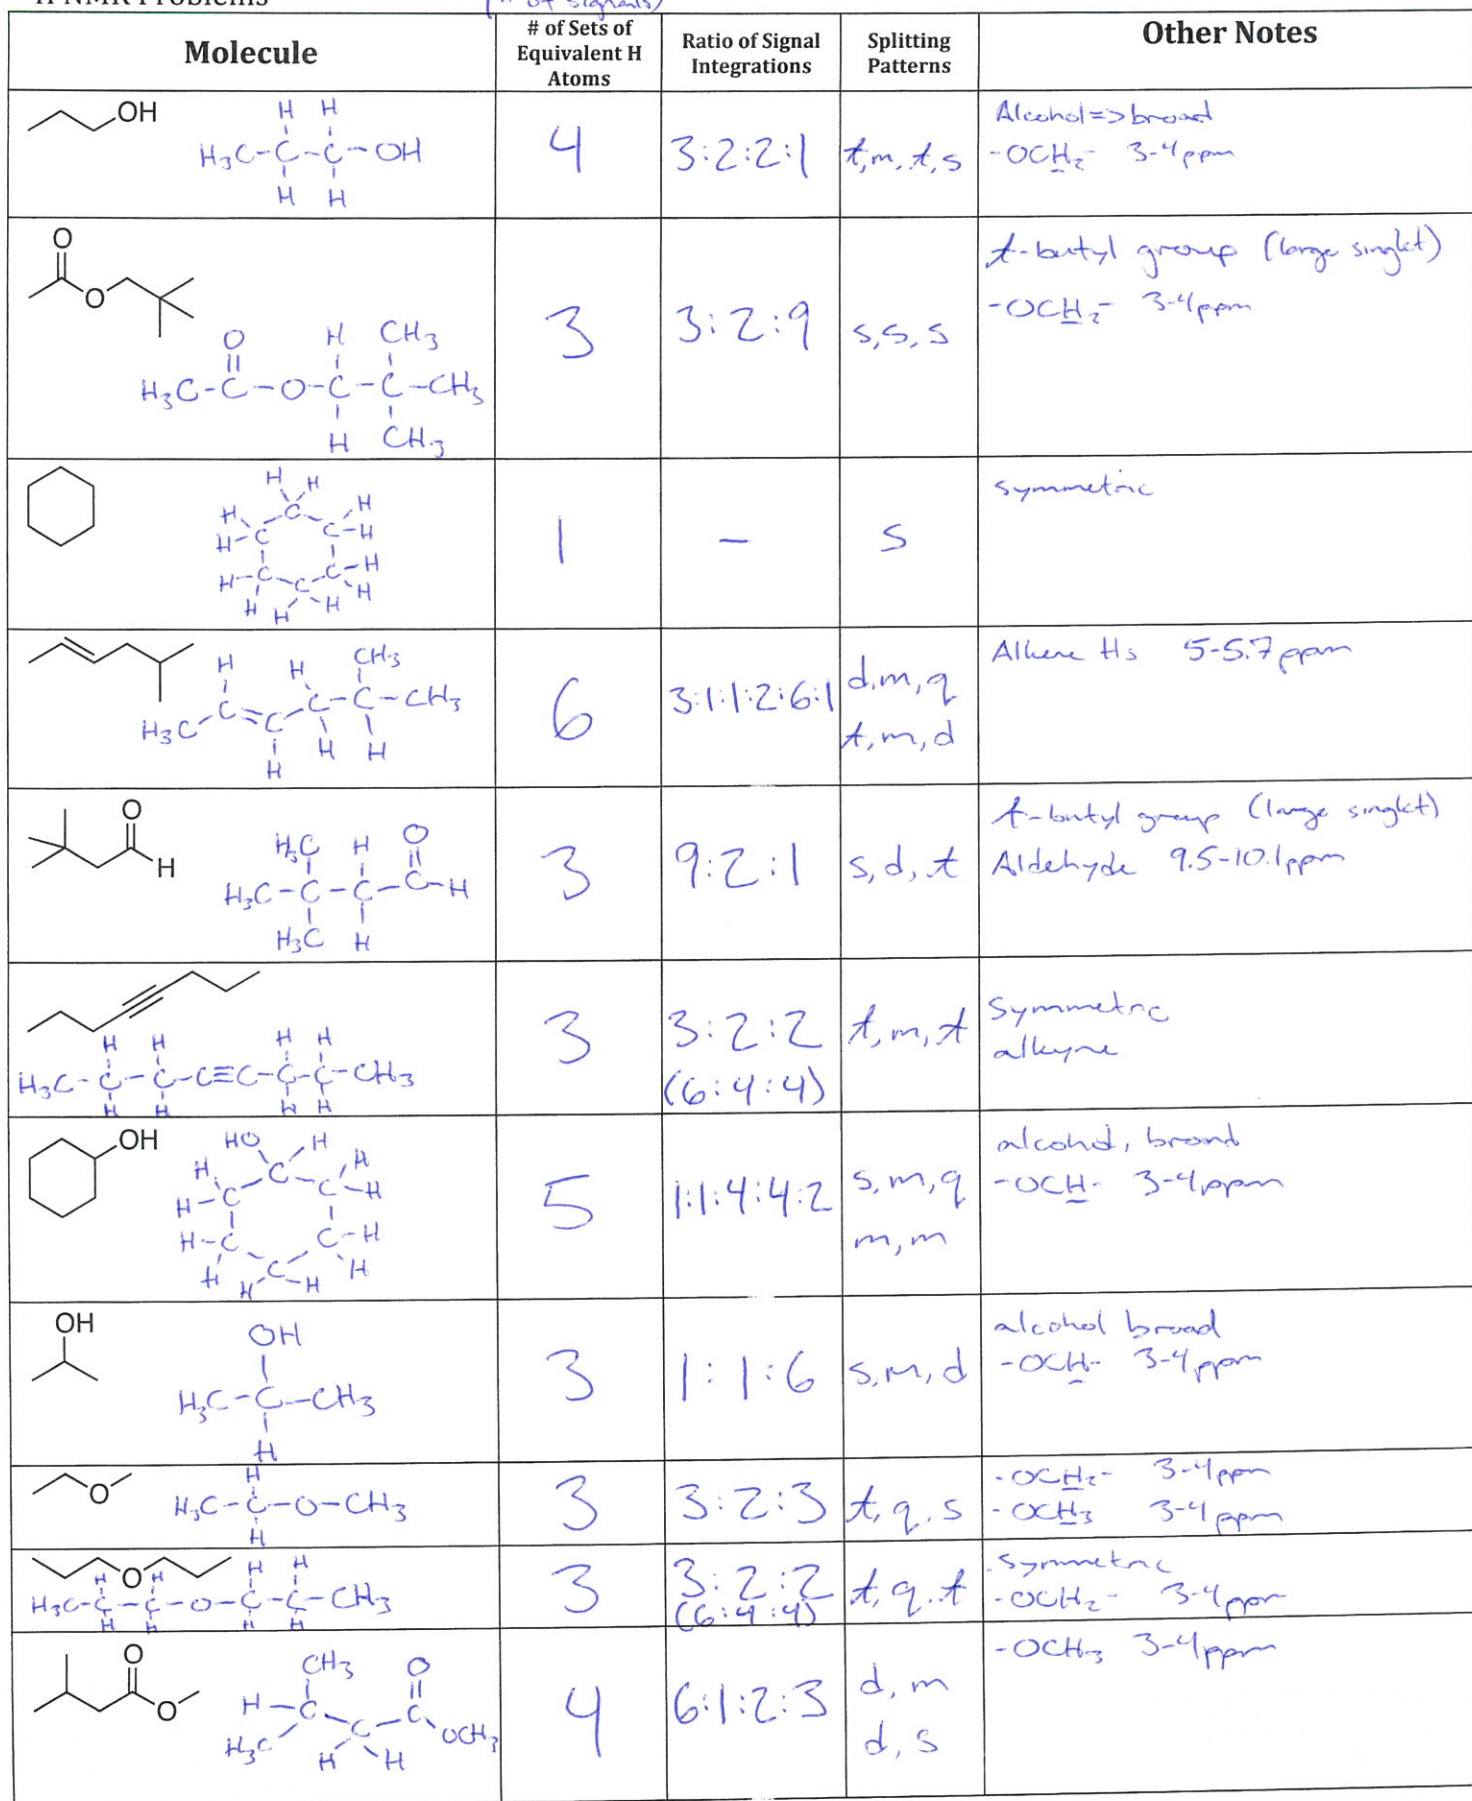 H NMR Problems
(# of signals)
Molecule
# of Sets of Equivalent H Atoms
Ratio of Signal Integrations
Splitting Patterns
Other Notes
OH
H H
H₃C-C-C-OH
H H
4
3:2:2:1
t,m,t,s
Alcohol=>broad
-OCH₂- 3-4ppm
O
O
O H CH₃
H₃C-C-O-C-C-CH₃
H CH₃
3
3:2:9
s,s,s
t-butyl group (large singlet)
-OCH₂- 3-4ppm
H H
H C H
H-C C-H
H-C C-H
H C H
H H
1
-
s
symmetric
H H CH₃
H₃C-C=C-C-C-CH₃
H H H
6
3:1:1:2:6:1
d,m,q
t,m,d
Alkene Hs 5-5.7ppm
O
H
H₃C H O
H₃C-C-C-C-H
H₃C H
3
9:2:1
s,d,t
t-butyl group (large singlet)
Aldehyde 9.5-10.1ppm
H H H H
H₃C-C-C-C≡C-C-C-CH₃
H H H H
3
3:2:2
(6:4:4)
t,m,t
Symmetric
alkyne
OH
HO H
H C H
H-C C-H
H-C C-H
H C H
H H
5
1:1:4:4:2
s,m,q
m,m
alcohol, broad
-OCH- 3-4ppm
OH
OH
H₃C-C-CH₃
H
3
1:1:6
s,m,d
alcohol broad
-OCH- 3-4ppm
O
H
H₃C-C-O-CH₃
H
3
3:2:3
t,q,s
-OCH₂- 3-4ppm
-OCH₃ 3-4ppm
O
H H H H
H₃C-C-C-O-C-C-CH₃
H H H H
3
3:2:2
(6:4:4)
t,q,t
Symmetric
-OCH₂- 3-4ppm
O
O
CH₃ O
H-C C-C
H₃C OCH₃
H H
4
6:1:2:3
d,m
d,s
-OCH₃ 3-4ppm